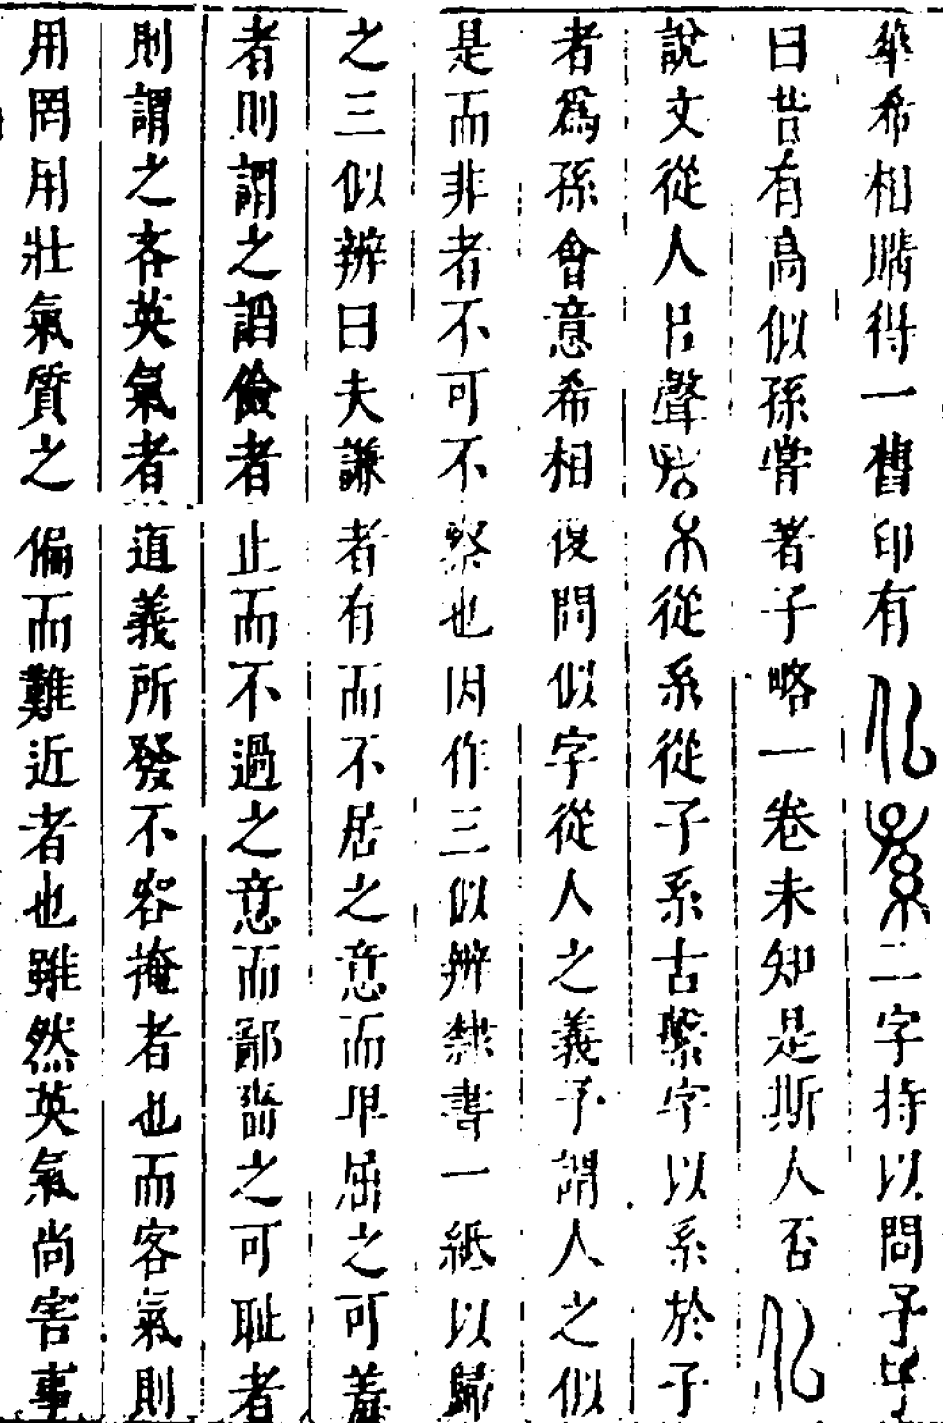 華希相購得一舊印有佀孫二字持以問予予
曰昔有高似孫嘗著子略一卷未知是斯人否佀
說文從人㠯聲孫從系從子系古繫字以系於子
者為孫會意希相復問似字從人之義予謂人之似
是而非者不可不察也因作三似辨隸書一紙以歸
之三似辨曰夫謙者有而不居之意而卑屈之可羞
者則謂之謟儉者止而不過之意而鄙嗇之可恥者
則謂之吝英氣者道義所發不容掩者也而客氣則
用罔用壯氣質之偏而難近者也雖然英氣尚害事